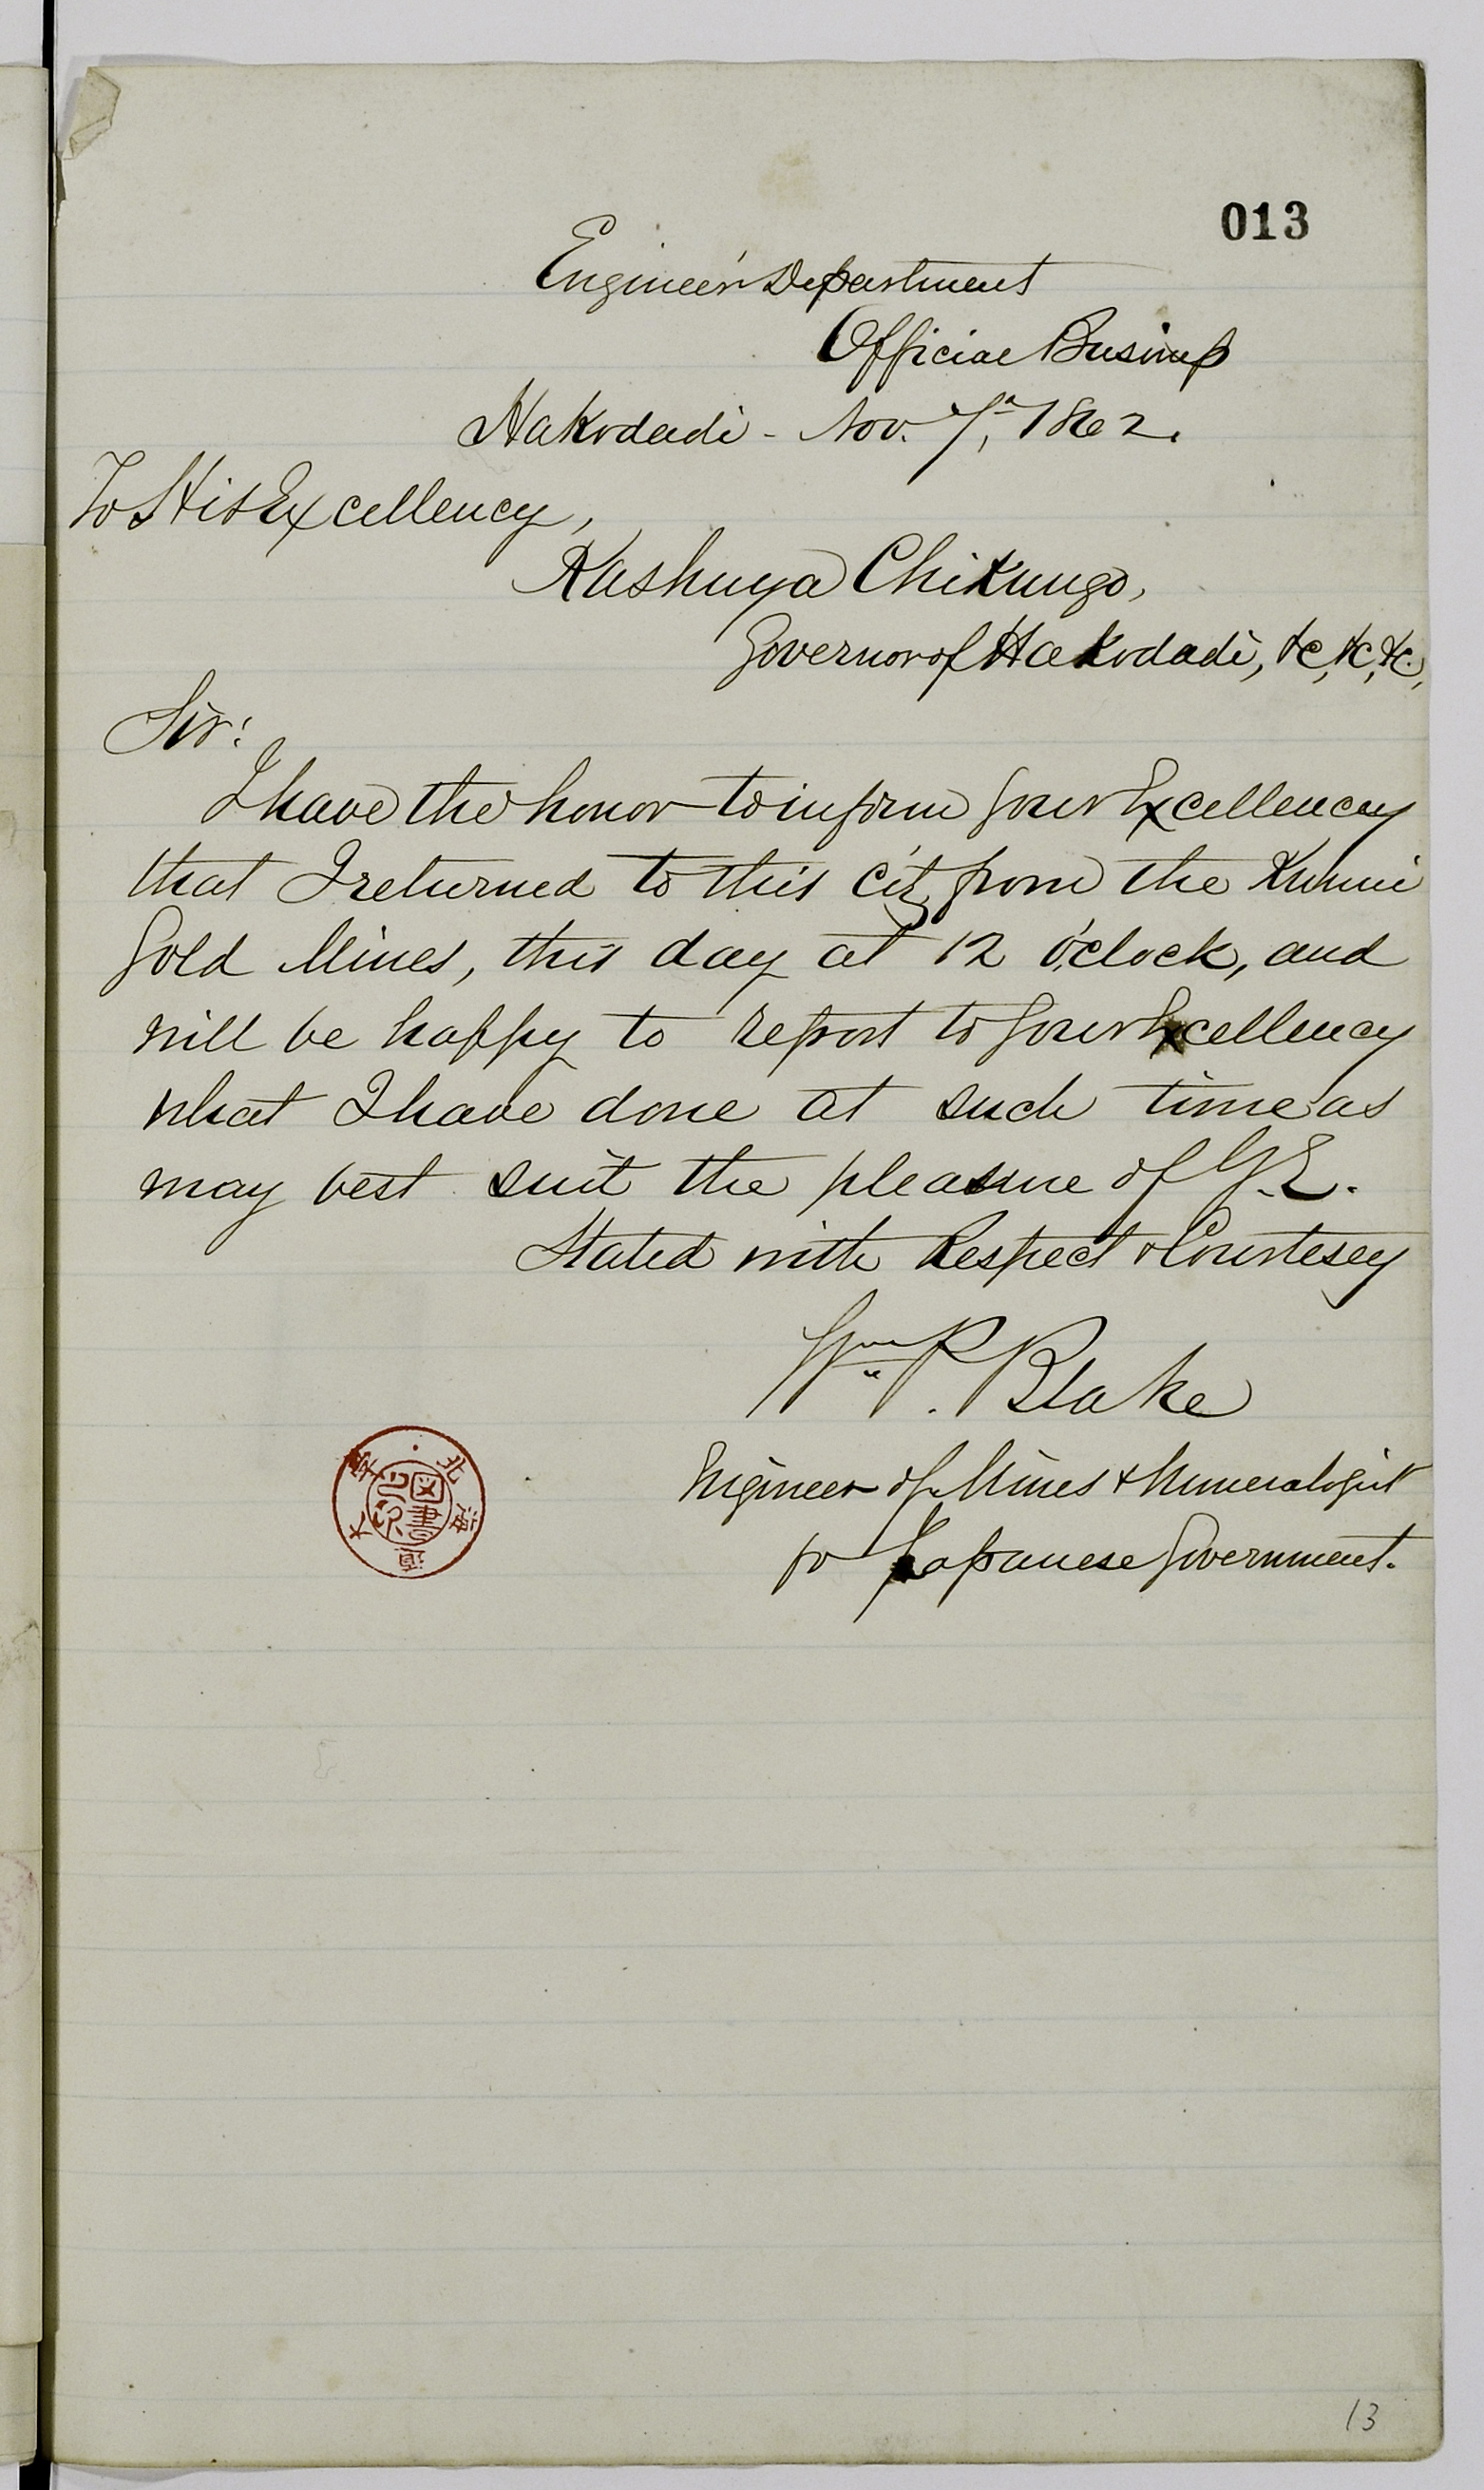 013
Engineer Department
Official Business
Hakodadi - Nov. 7th, 1862.
To His Excellency,
Kashuya Chikungo,
Governor of Hakodadi, &c, &c, &c,
Sir:
I have the honor to inform Your Excellency
that I returned to this city from the Kunnui
Gold Mines, this day at 12 o'clock, and
will be happy to report to Your Excellency
what I have done at such time as
may best suit the pleasure of Y.E.
Stated with Respect & Courtesey
Wm P. Blake
Engineer of Mines & Mineralogist
to Japanese Government.
北海道大学
図書之印
13